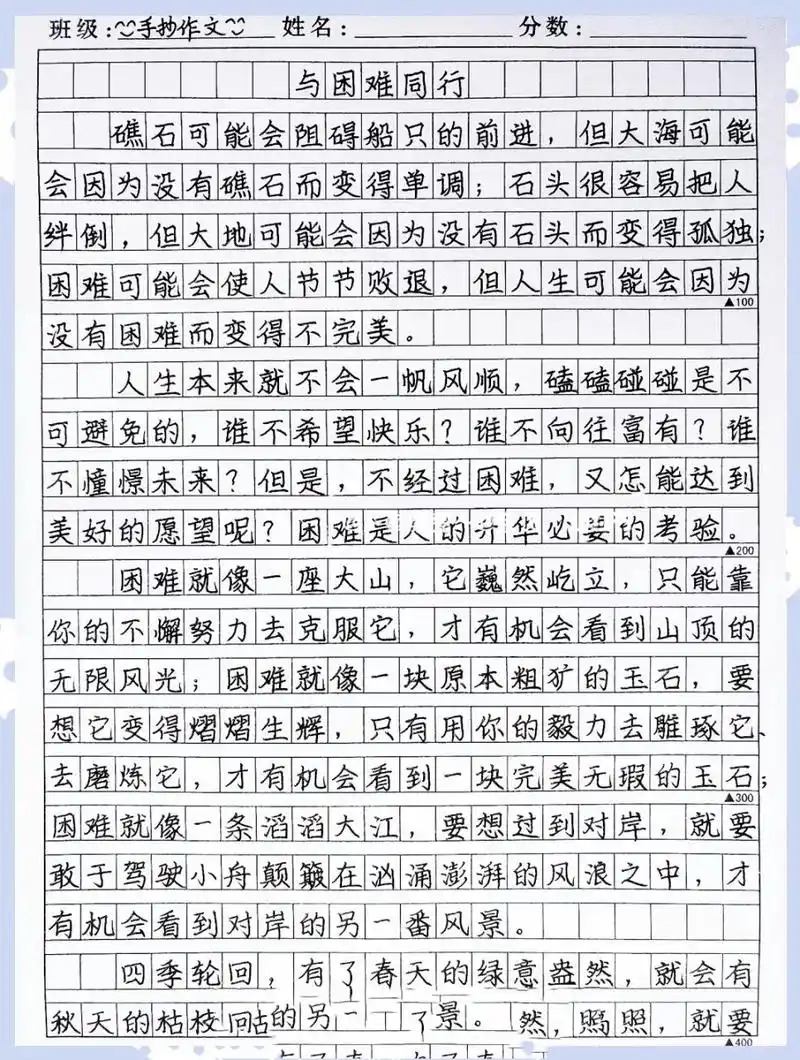 班级:手抄作文 姓名: 分数:
与困难同行
礁石可能会阻碍船只的前进,但大海可能
会因为没有礁石而变得单调;石头很容易把人
绊倒,但大地可能会因为没有石头而变得孤独;
困难可能会使人节节败退,但人生可能会因为
▲100
没有困难而变得不完美。
人生本来就不会一帆风顺,磕磕碰碰是不
可避免的,谁不希望快乐?谁不向往富有?谁
不憧憬未来?但是,不经过困难,又怎能达到
美好的愿望呢?困难是人的升华必要的考验。
▲200
困难就像一座大山,它巍然屹立,只能靠
你的不懈努力去克服它,才有机会看到山顶的
无限风光;困难就像一块原本粗犷的玉石,要
想它变得熠熠生辉,只有用你的毅力去雕琢它、
去磨炼它,才有机会看到一块完美无瑕的玉石;
▲300
困难就像一条滔滔大江,要想过到对岸,就要
敢于驾驶小舟颠簸在汹涌澎湃的风浪之中,才
有机会看到对岸的另一番风景。
四季轮回,有了春天的绿意盎然,就会有
秋天的枯枝 的另一 了景。然, 照,就要
▲400